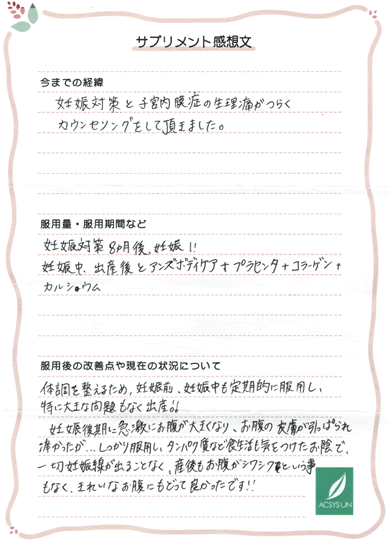 サプリメント感想文
今までの経緯
妊娠対策と子宮内膜症の生理痛がつらく
カウンセリングをして頂きました。
服用量・服用期間など
妊娠対策 8カ月後、妊娠!!
妊娠中、出産後とアンズボディケア+プラセンタ+コラーゲン+
カルシウム
服用後の改善点や現在の状況について
体調を整えるため、妊娠前、妊娠中も定期的に服用し、
特に大きな問題もなく出産!!
妊娠後期に急激にお腹が大きくなり、お腹の皮膚が引っぱられ
痛かったが…しっかり服用し、タンパク質など食生活も気をつけたお陰で、
一切妊娠線が出ることなく、産後もお腹がシワシワという事
もなく、きれいなお腹にもどって良かったです!!
ACSYS UN